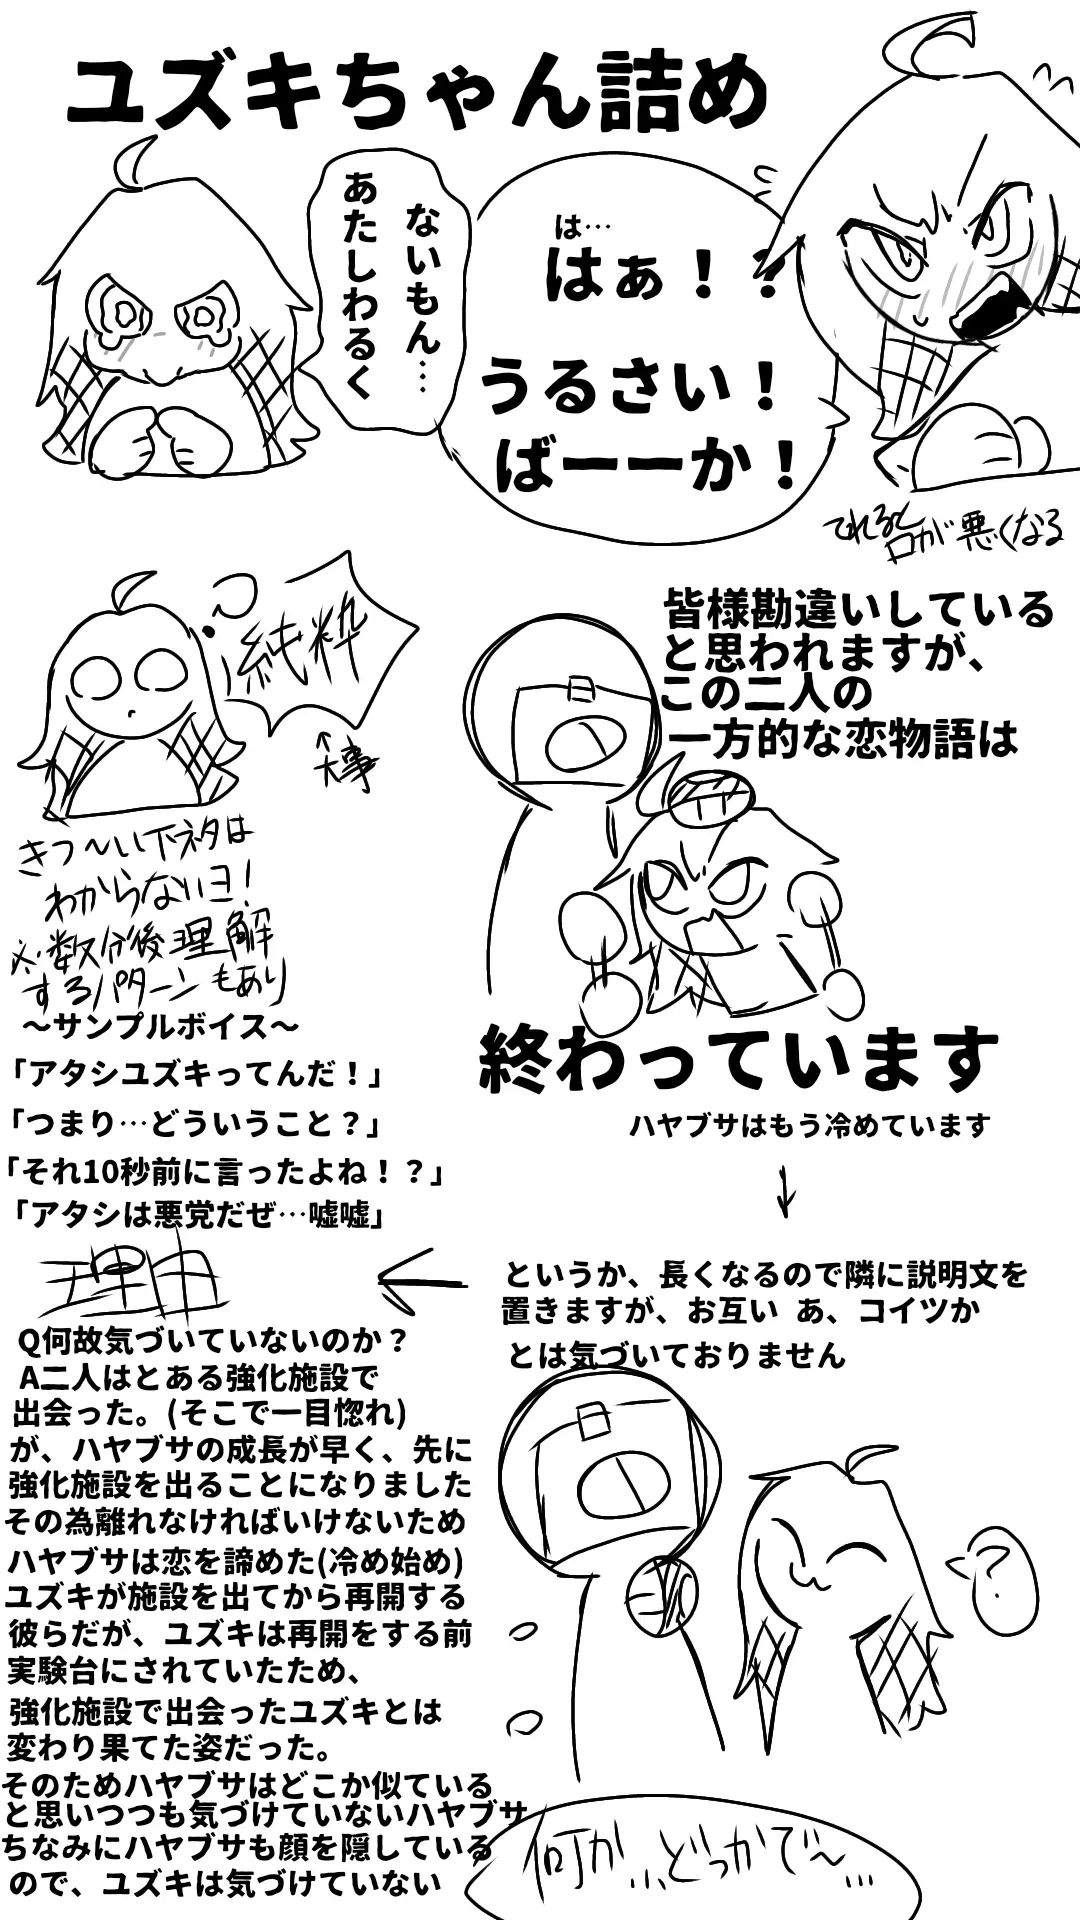 ユズキちゃん詰め
あたしわるく
ないもん…
は…
はぁ！？
うるさい！
ばーーか！
てれると
口が悪くなる
純粋
↑
大事
きつ～い下ネタは
わからないヨ！
※数分後理解
するパターンもあり
～サンプルボイス～
「アタシユズキってんだ！」
「つまり…どういうこと？」
「それ10秒前に言ったよね！？」
「アタシは悪党だぜ…嘘嘘」
皆様勘違いしている
と思われますが、
この二人の
一方的な恋物語は
終わっています
ハヤブサはもう冷めています
↓
というか、長くなるので隣に説明文を
置きますが、お互い あ、コイツか
とは気づいておりません
←
理由
Q何故気づいていないのか？
A二人はとある強化施設で
出会った。(そこで一目惚れ)
が、ハヤブサの成長が早く、先に
強化施設を出ることになりました
その為離れなければいけないため
ハヤブサは恋を諦めた(冷め始め)
ユズキが施設を出てから再開する
彼らだが、ユズキは再開をする前
実験台にされていたため、
強化施設で出会ったユズキとは
変わり果てた姿だった。
そのためハヤブサはどこか似ている
と思いつつも気づけていないハヤブサ
ちなみにハヤブサも顔を隠している
ので、ユズキは気づけていない
？
何か…どっかで～…